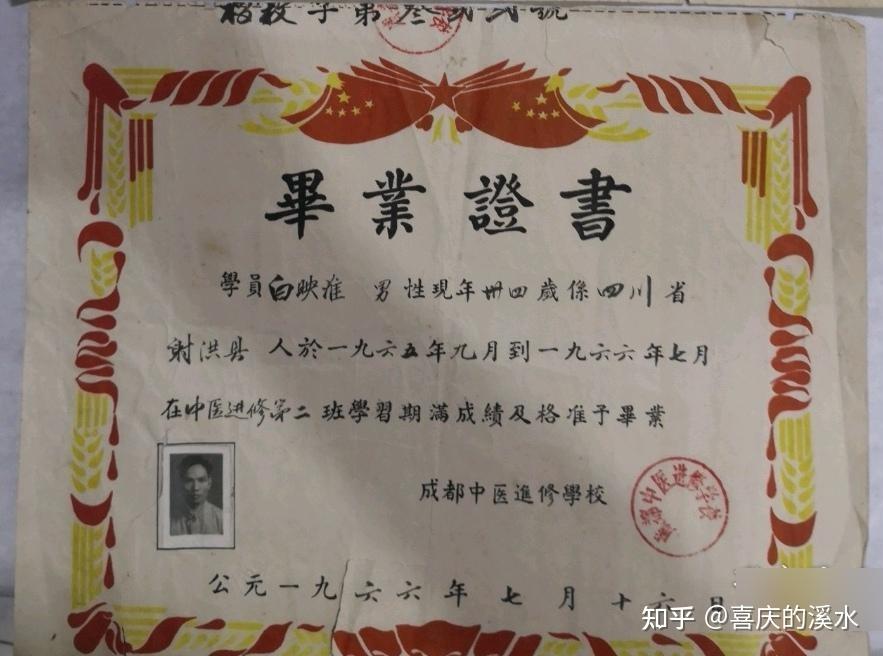 字第叁贰贰號
畢業證書
學員白映淮 男性現年卌四歲係四川省
射洪县人於一九六五年九月到一九六六年七月
在中医进修第二班學習期滿成績及格准予畢業
成都中医進修學校
成都中医進修學校
公元一九六六年七月十六日
知乎 @喜庆的溪水